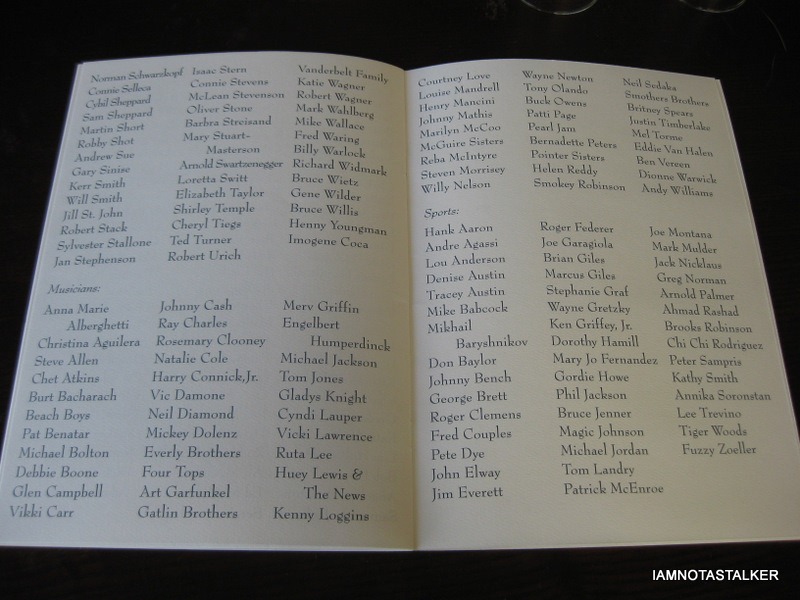 Norman Schwarzkopf
Connie Selleca
Cybil Sheppard
Sam Sheppard
Martin Short
Robby Shot
Andrew Sue
Gary Sinise
Kerr Smith
Will Smith
Jill St. John
Robert Stack
Sylvester Stallone
Jan Stephenson
Isaac Stern
Connie Stevens
McLean Stevenson
Oliver Stone
Barbra Streisand
Mary Stuart-
Masterson
Arnold Swartzenegger
Loretta Switt
Elizabeth Taylor
Shirley Temple
Cheryl Tiegs
Ted Turner
Robert Urich
Vanderbelt Family
Katie Wagner
Robert Wagner
Mark Wahlberg
Mike Wallace
Fred Waring
Billy Warlock
Richard Widmark
Bruce Wietz
Gene Wilder
Bruce Willis
Henny Youngman
Imogene Coca
Musicians:
Anna Marie
Alberghetti
Christina Aguilera
Steve Allen
Chet Atkins
Burt Bacharach
Beach Boys
Pat Benatar
Michael Bolton
Debbie Boone
Glen Campbell
Vikki Carr
Johnny Cash
Ray Charles
Rosemary Clooney
Natalie Cole
Harry Connick,Jr.
Vic Damone
Neil Diamond
Mickey Dolenz
Everly Brothers
Four Tops
Art Garfunkel
Gatlin Brothers
Merv Griffin
Engelbert
Humperdinck
Michael Jackson
Tom Jones
Gladys Knight
Cyndi Lauper
Vicki Lawrence
Ruta Lee
Huey Lewis &
The News
Kenny Loggins
Courtney Love
Louise Mandrell
Henry Mancini
Johnny Mathis
Marilyn McCoo
McGuire Sisters
Reba McIntyre
Steven Morrisey
Willy Nelson
Wayne Newton
Tony Olando
Buck Owens
Patti Page
Pearl Jam
Bernadette Peters
Pointer Sisters
Helen Reddy
Smokey Robinson
Neil Sedaka
Smothers Brothers
Britney Spears
Justin Timberlake
Mel Torme
Eddie Van Halen
Ben Vereen
Dionne Warwick
Andy Williams
Sports:
Hank Aaron
Andre Agassi
Lou Anderson
Denise Austin
Tracey Austin
Mike Babcock
Mikhail
Baryshnikov
Don Baylor
Johnny Bench
George Brett
Roger Clemens
Fred Couples
Pete Dye
John Elway
Jim Everett
Roger Federer
Joe Garagiola
Brian Giles
Marcus Giles
Stephanie Graf
Wayne Gretzky
Ken Griffey, Jr.
Dorothy Hamill
Mary Jo Fernandez
Gordie Howe
Phil Jackson
Bruce Jenner
Magic Johnson
Michael Jordan
Tom Landry
Patrick McEnroe
Joe Montana
Mark Mulder
Jack Nicklaus
Greg Norman
Arnold Palmer
Ahmad Rashad
Brooks Robinson
Chi Chi Rodriguez
Peter Sampris
Kathy Smith
Annika Soronstan
Lee Trevino
Tiger Woods
Fuzzy Zoeller
IAMNOTASTALKER